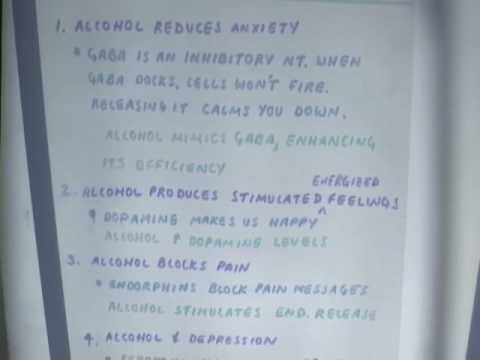 1. ALCOHOL REDUCES ANXIETY
• GABA IS AN INHIBITORY NT. WHEN
GABA DOCKS, CELLS WON'T FIRE.
RELEASING IT CALMS YOU DOWN.
ALCOHOL MIMICS GABA, ENHANCING
ITS EFFICIENCY
ENERGIZED
2. ALCOHOL PRODUCES STIMULATED ^ FEELINGS
• DOPAMINE MAKES US HAPPY
ALCOHOL ↑ DOPAMINE LEVELS
3. ALCOHOL BLOCKS PAIN
• ENDORPHINS BLOCK PAIN MESSAGES
ALCOHOL STIMULATES END. RELEASE
4. ALCOHOL & DEPRESSION